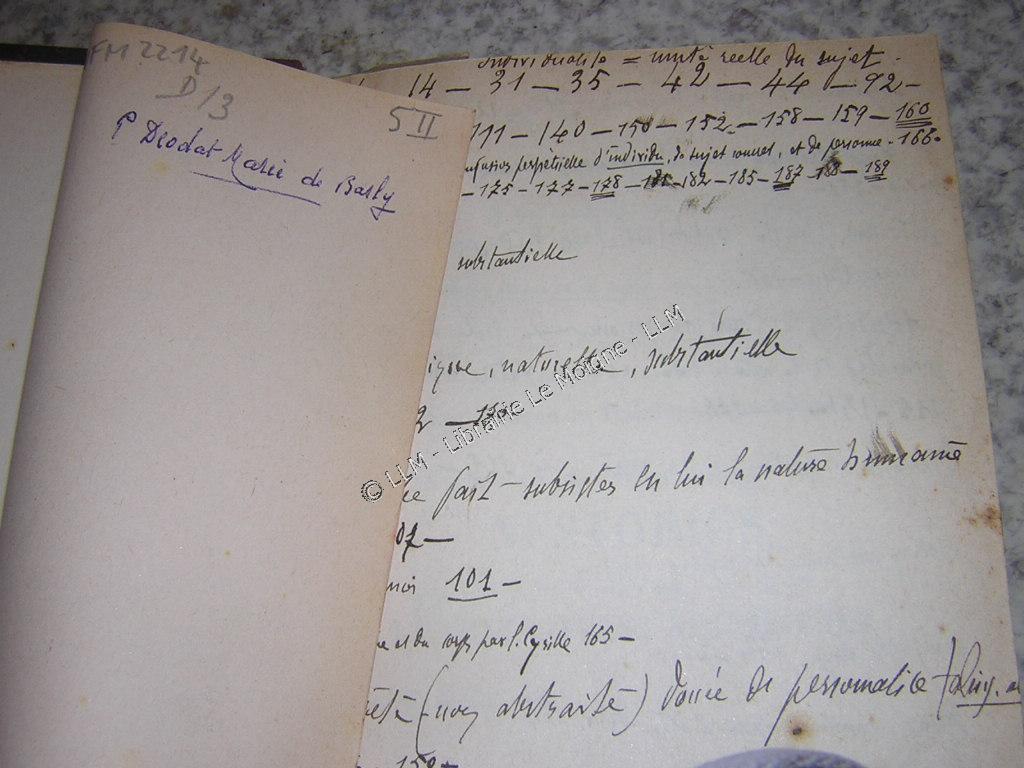 FM 2214
D 13
5 II
P Deodat Marie de Basly
Individualité = unité réelle du sujet.
14 – 31 – 35 – 42 – 44 – 92 –
111 – 140 – 150 – 152 – 158 – 159 – 160
perpétuelle d'individu, de sujet connu, et de personne – 166 –
– 175 – 177 – 178 – 182 – 185 – 187 – 188 – 189
substantielle
, naturelle, substantielle
© LLM - Librairie Le Moigne - LLM
fait subsister en lui la nature humaine
07 –
101 –
et du corps par S. Cyrille 165 –
(non abstraite) douée de personnalité